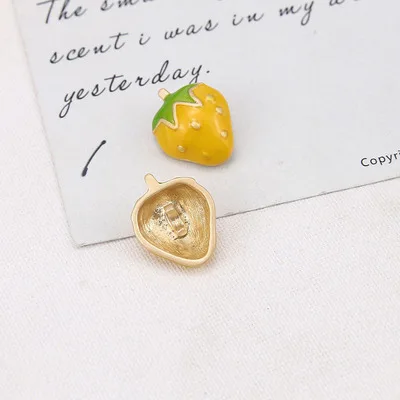 The sma
scent i was in my w
yesterday.
Copyri